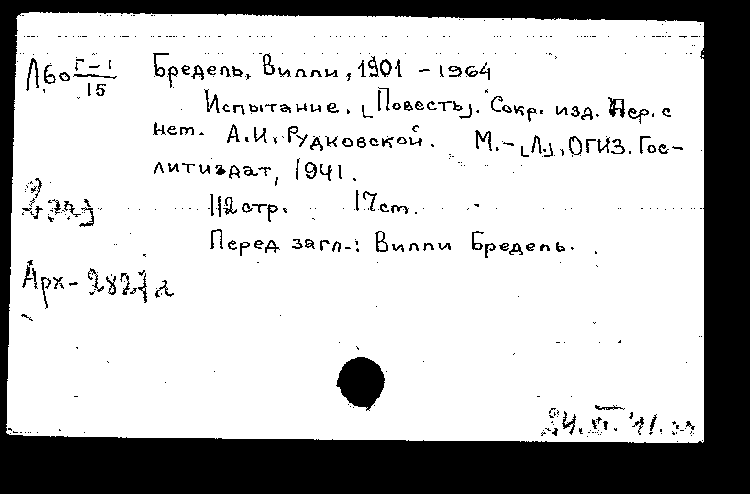 Л60 Г-1/15
Бредель, Вилли, 1901 - 1964
Испытание. [Повесть]. Сокр. изд. Пер. с
нем. А.И. Рудковской. М.-[Л.], ОГИЗ. Гос-
литиздат, 1941.
112 стр. 17 см.
2 экз
Перед загл.: Вилли Бредель.
Арх-2827а
24.XI.41